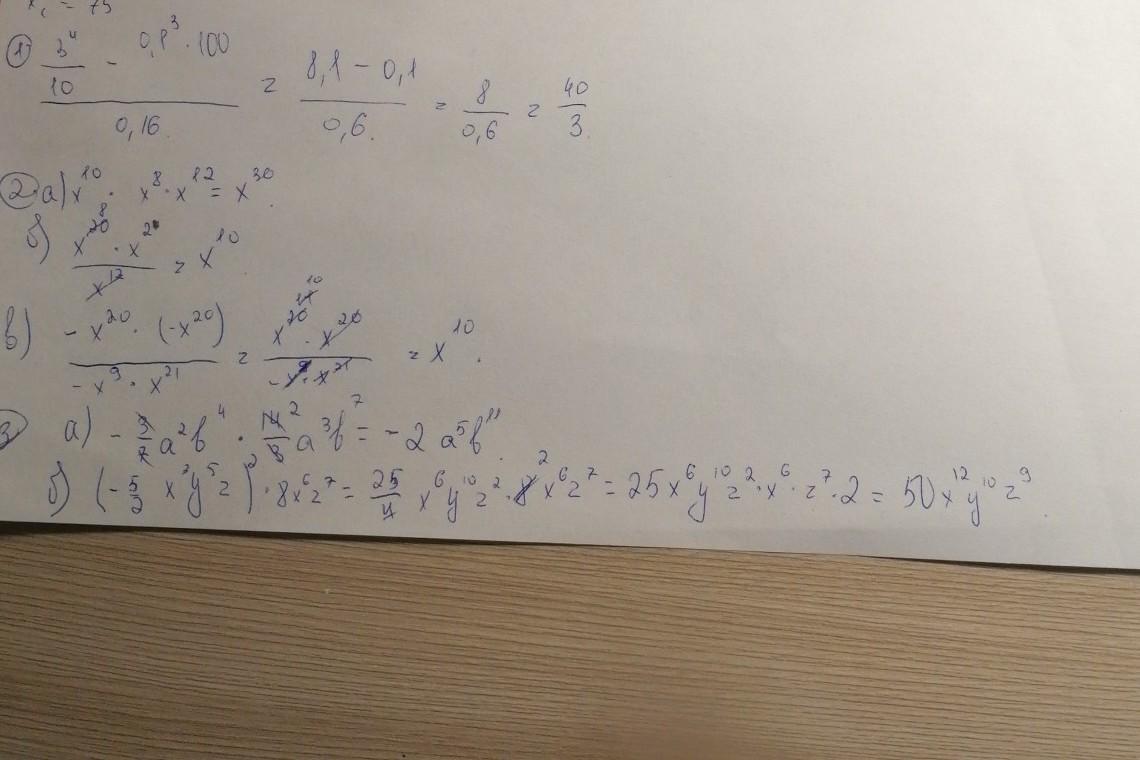 x₁ = 75
① (3⁴/10 - 0,1³·100)/0,16 = (8,1 - 0,1)/0,6 = 8/0,6 = 40/3.
② а) x¹⁰ · x⁸ · x¹² = x³⁰.
б) (x²⁰ ⁸ · x²)/x¹² = x¹⁰
в) (-x²⁰ · (-x²⁰))/(-x⁹ · x²¹) = (x²⁰ · x²⁰)/(-x⁹ · x²¹) = x¹⁰.
3 а) - 3/7 a²b⁴ · 14 ²/3 a³b⁷ = - 2 a⁵b¹¹.
б) (- 5/2 x³y⁵z)² · 8x⁶z⁷ = 25/4 x⁶y¹⁰z² · 8 ² x⁶z⁷ = 25x⁶y¹⁰z² · x⁶ · z⁷ · 2 = 50x¹²y¹⁰z⁹.